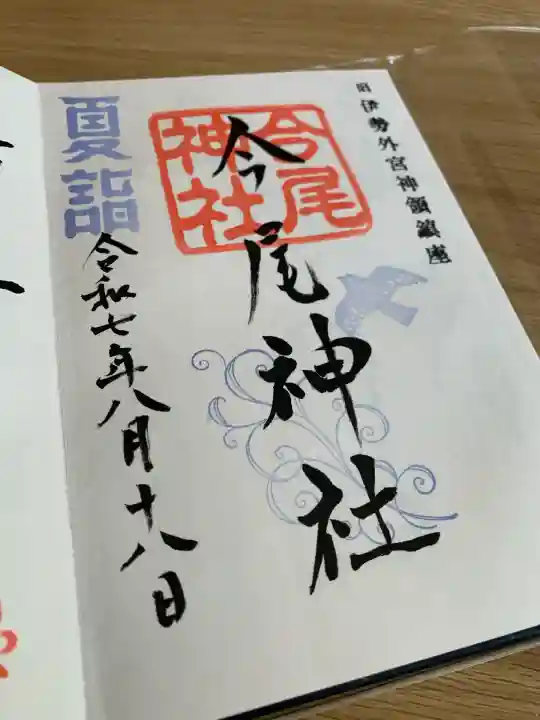 旧伊勢外宮神領鎮座
今尾神社
今尾神社
夏詣
令和七年八月十八日